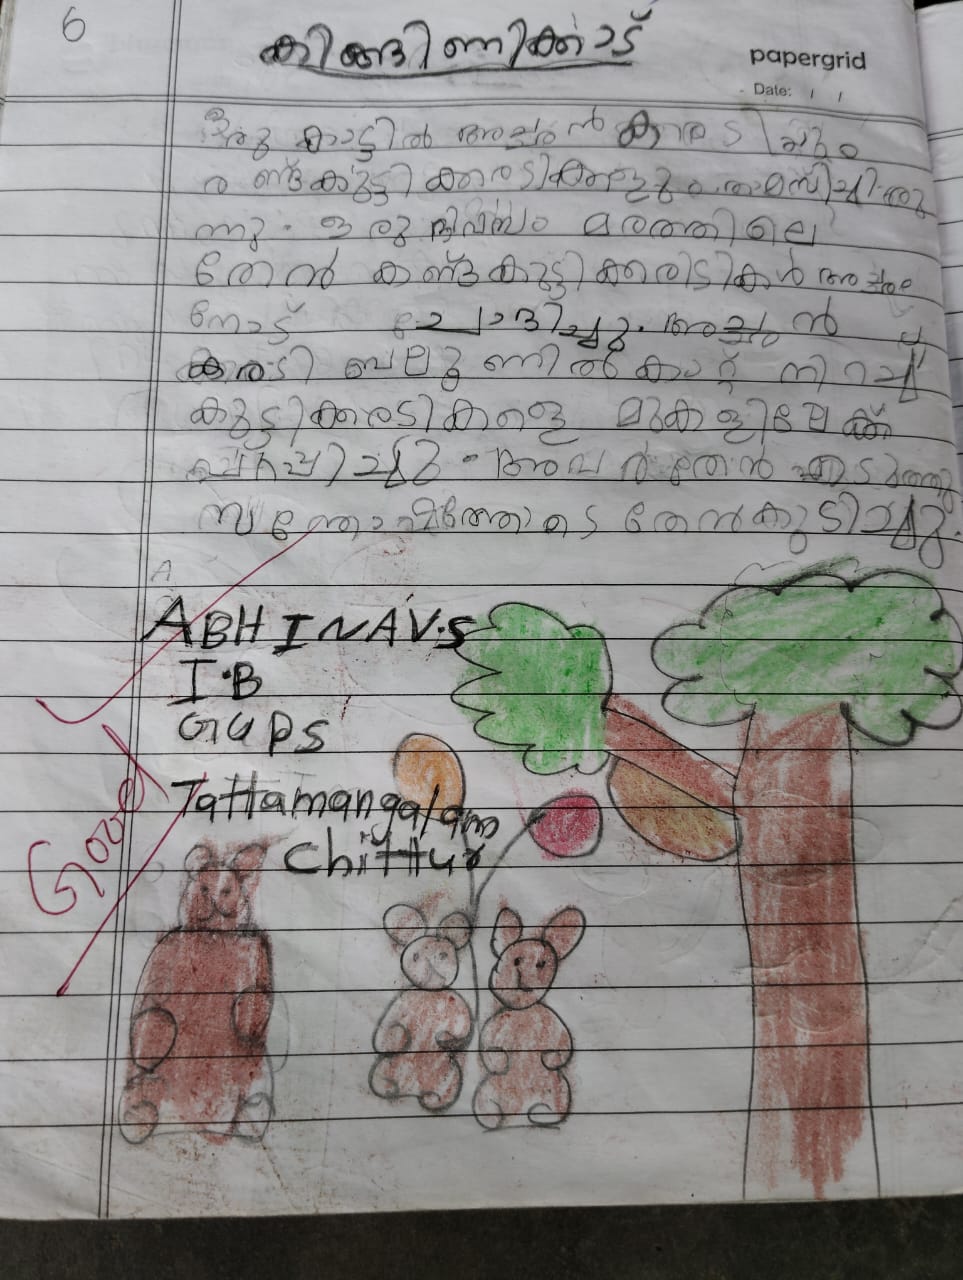 6
കിങ്ങിണിക്കാട്
papergrid
Date: / /
ഒരു കാട്ടിൽ അച്ഛൻ കരടിയും
രണ്ട് കുട്ടി കരടികളും താമസിച്ചിരു
ന്നു. ഒരു ദിവസം മരത്തിലെ
തേൻ കണ്ട കുട്ടി കരടികൾ അച്ഛ
നോട് ചോദിച്ചു. അച്ഛൻ
കരടി ബലൂണിൽ കാറ്റ് നിറച്ച്
കുട്ടി കരടികളെ മുകളിലേക്ക്
അവർ തേൻ എടുത്തു
സന്തോഷത്തോടെ തേൻ കുടിച്ചു.
A
ABHINAV.S
I.B
GUPS
Tattamangalam
Chittur
Good